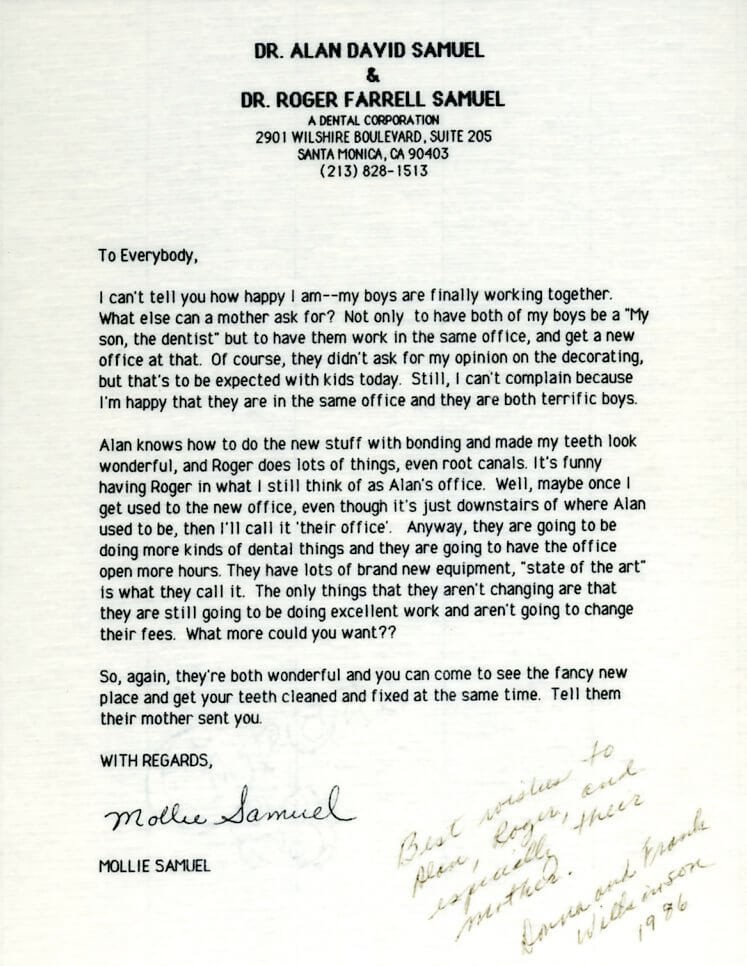 DR. ALAN DAVID SAMUEL
&
DR. ROGER FARRELL SAMUEL
A DENTAL CORPORATION
2901 WILSHIRE BOULEVARD, SUITE 205
SANTA MONICA, CA 90403
(213) 828-1513
To Everybody,
I can't tell you how happy I am--my boys are finally working together.
What else can a mother ask for? Not only to have both of my boys be a "My
son, the dentist" but to have them work in the same office, and get a new
office at that. Of course, they didn't ask for my opinion on the decorating,
but that's to be expected with kids today. Still, I can't complain because
I'm happy that they are in the same office and they are both terrific boys.
Alan knows how to do the new stuff with bonding and made my teeth look
wonderful, and Roger does lots of things, even root canals. It's funny
having Roger in what I still think of as Alan's office. Well, maybe once I
get used to the new office, even though it's just downstairs of where Alan
used to be, then I'll call it 'their office'. Anyway, they are going to be
doing more kinds of dental things and they are going to have the office
open more hours. They have lots of brand new equipment, "state of the art"
is what they call it. The only things that they aren't changing are that
they are still going to be doing excellent work and aren't going to change
their fees. What more could you want??
So, again, they're both wonderful and you can come to see the fancy new
place and get your teeth cleaned and fixed at the same time. Tell them
their mother sent you.
WITH REGARDS,
Mollie Samuel
MOLLIE SAMUEL
Best wishes to
Alan, Roger, and
especially their
mother.
Donna and Frank
Wilkinson
1986